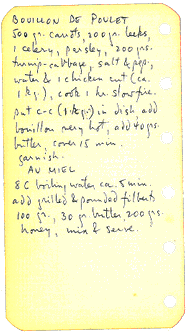 BOUILLON DE POULET
500 gr. carrots, 200 gr. leeks,
1 celery, parsley, 200 grs.
turnip-cabbage, salt & pep.,
water & 1 chicken cut (ca.
1 kg.), cook 1 hr. slow fire.
Put c-c (1 kg.) in dish, add
bouillon very hot, add 40 grs.
butter, cover 15 min.
garnish.
AU MIEL
8 C boiling water, ca. 5 min.
add grilled & pounded filberts
100 gr., 30 gr butter 200 grs.
honey, mix & serve.